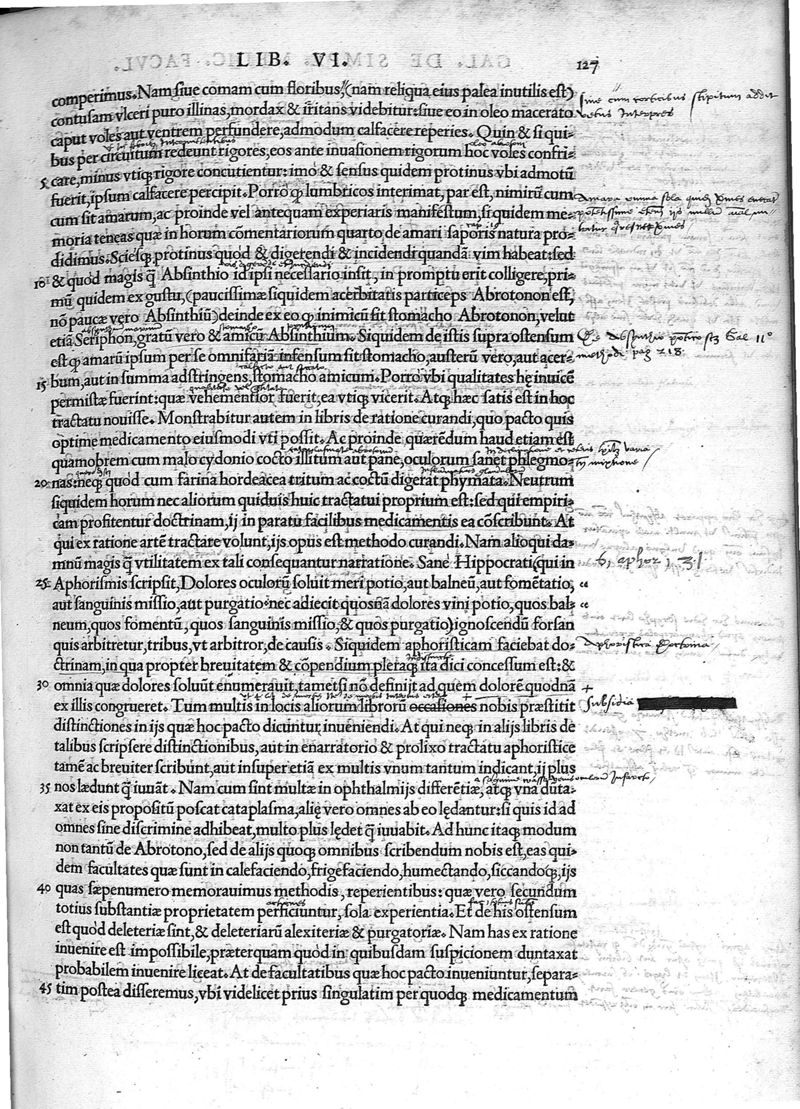 LIB. VI. 127
comperimus. Nam siue comam cum floribus (nam reliqua eius palea inutilis est)
contusam vlceri puro illinas, mordax & irritans videbitur: siue eo in oleo macerato
caput voles aut ventrem perfundere, admodum calfacere reperies. Quin & si qui-
bus per circuitum redeunt rigores, eos ante inuasionem rigorum hoc voles confri-
5 care, minus vtiq; rigore concutientur: imò & sensus quidem protinus vbi admotū
fuerit, ipsum calfacere percipit. Porrò q̄ lumbricos interimat, par est, nimirū cum
cum sit amarum, ac proinde vel antequam experiaris manifestum, si quidem me-
moria teneas quæ in horum cōmentariorum quarto de amari saporis natura pro-
didimus. Sciesq; protinus quòd & digerendi & incidendi quandā vim habeat: sed
10 & quòd magis q̄ Absinthio id ipsi necessario insit, in promptu erit colligere, pri-
mū quidem ex gustu, (paucissimæ siquidem acerbitatis particeps Abrotonon est,
nō paucæ vero Absinthiū) deinde ex eo q̄ inimicū sit stomacho Abrotonon, velut
etiā Seriphon, gratū vero & amicū Absinthium. Siquidem de istis supra ostensum
est q̄ amarū ipsum per se omnifariā infensum sit stomacho, austerū vero, aut acer-
15 bum, aut in summa adstringens, stomacho amicum. Porrò vbi qualitates hę inuicē
permistæ fuerint: quæ vehementior fuerit, ea vtiq; vicerit. Atq; hæc satis est in hoc
tractatu nouisse. Monstrabitur autem in libris de ratione curandi, quo pacto quis
optime medicamento eiusmodi vti possit. Ac proinde quærēdum haud etiam est
quamobrem cum malo cydonio cocto illitum aut pane, oculorum sanet phlegmo-
20 nas: neq; quòd cum farina hordeacea tritum ac coctū digerat phymata. Neutrum
siquidem horum nec aliorum quiduis huic tractatui proprium est: sed qui empiri-
cam profitentur doctrinam, ij in paratu facilibus medicamentis ea cōscribunt. At
qui ex ratione artē tractare volunt, ijs opus est methodo curandi. Nam alioqui da-
mnū magis q̄ vtilitatem ex tali consequantur narratione. Sane Hippocrati (qui in
25 Aphorismis scripsit, Dolores oculorū soluit meri potio, aut balneū, aut fomētatio,
aut sanguinis missio, aut purgatio: nec adiecit quosnā dolores vini potio, quos bal-
neum, quos fomentū, quos sanguinis missio, & quos purgatio) ignoscendū forsan
quis arbitretur, tribus, vt arbitror, de causis. Siquidem aphoristicam faciebat do-
ctrinam, in qua propter breuitatem & cōpendium pleraq; ita dici concessum est: &
30 omnia quæ dolores soluūt enumerauit, tametsi nō definijt ad quem dolorē quodnā
ex illis congrueret. Tum multis in locis aliorum librorū occasiones nobis præstitit
distinctiones in ijs quæ hoc pacto dicuntur inueniendi. At qui neq; in alijs libris de
talibus scripsere distinctionibus, aut in enarratorio & prolixo tractatu aphoristice
tamē ac breuiter scribunt, aut insuper etiā ex multis vnum tantum indicant, ij plus
35 nos lædunt q̄ iuuāt. Nam cum sint multæ in ophthalmijs differētiæ, atq; vna duta-
xat ex eis propositū poscat cataplasma, alię vero omnes ab eo lędantur: si quis id ad
omnes sine discrimine adhibeat, multo plus lędet q̄ iuuabit. Ad hunc itaq; modum
non tantū de Abrotono, sed de alijs quoq; omnibus scribendum nobis est, eas qui-
dem facultates quæ sunt in calefaciendo, frigefaciendo, humectando, siccandoq;, ijs
40 quas sæpenumero memorauimus methodis, reperientibus: quæ vero secundum
totius substantiæ proprietatem perficiuntur, sola experientia. Et de his ostensum
est quòd deleteriæ sint, & deleteriarū alexiteriæ & purgatoriæ. Nam has ex ratione
inuenire est impossibile, præterquam quòd in quibusdam suspicionem duntaxat
probabilem inuenire liceat. At de facultatibus quæ hoc pacto inueniuntur, separa-
45 tim postea disseremus, vbi videlicet prius singulatim per quodq; medicamentum
siue cum corticibus stipitum addit
vetus interpres
6, aphor, 31
Aphoristica doctrina
+
subsidia